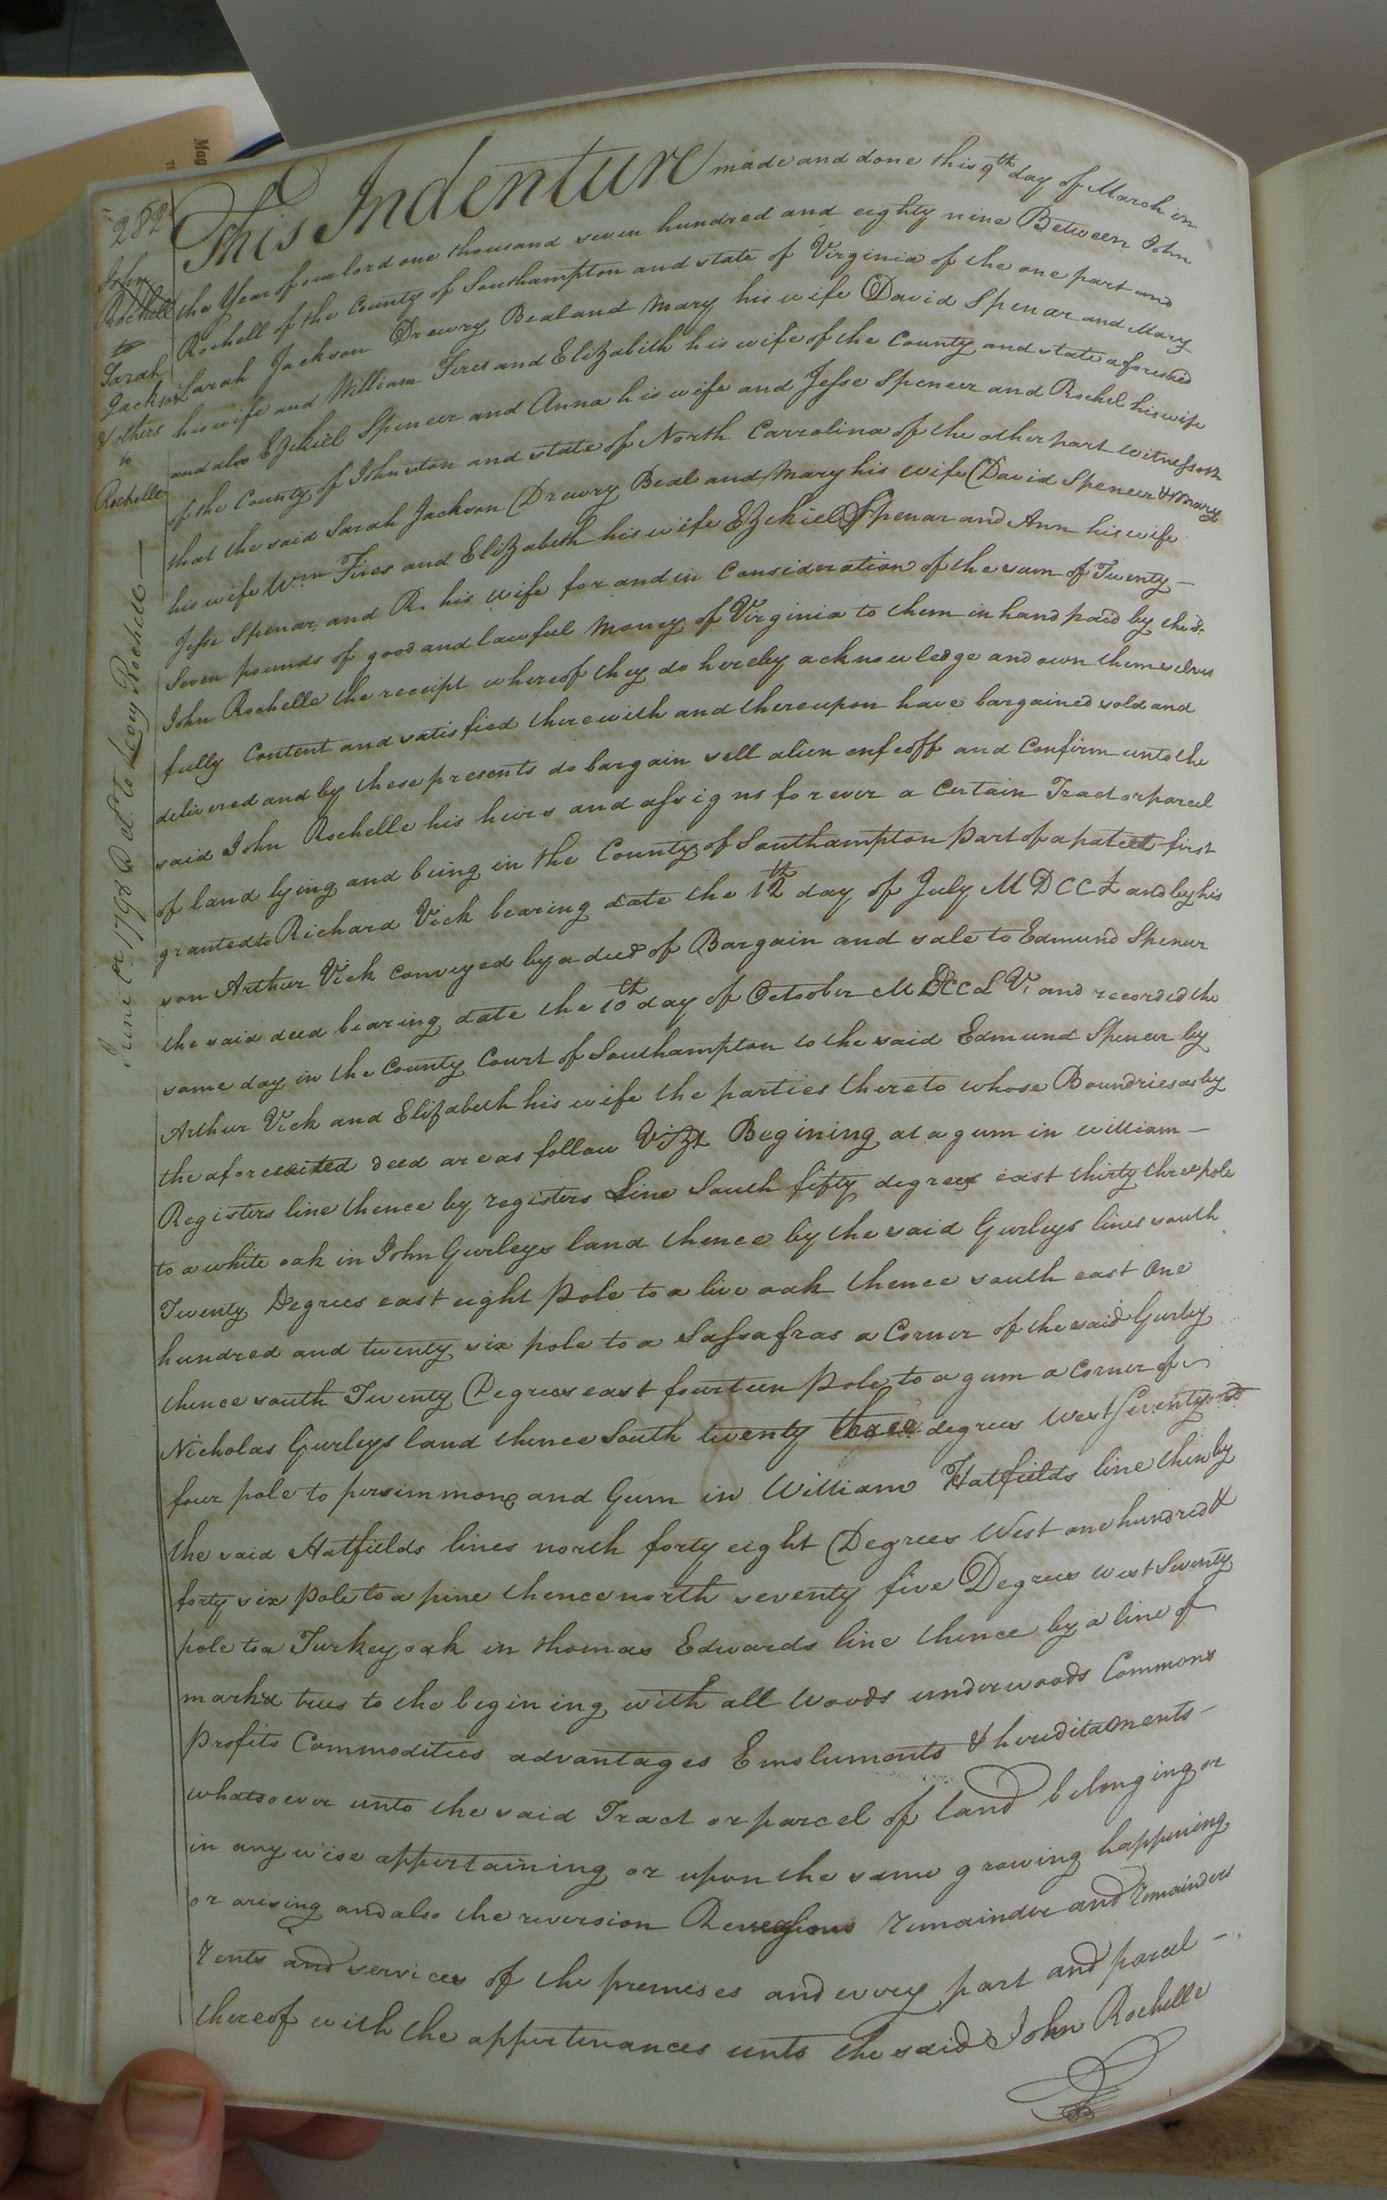 Mag
282
John
Rochell
to
Sarah
Jackson
& others
to
Rochelle
June Ct. 1798 Dd. to Levy Rochell —
This Indenture made and done this 9th day of March in
the Year of our lord one thousand seven hundred and eighty nine Between John
Rochell of the County of Southampton and state of Virginia of the one part and
Sarah Jackson Drewry Beal and Mary his wife David Spenar and Mary
his wife and William Fires and Elizabeth his wife of the County and state aforesaid
and also Ezekiel Spencer and Anna his wife and Jesse Spencer and Rochel his wife
of the County of Johnston and state of North Carrolina of the other part witnesseth
that the said Sarah Jackson Drewry Beal and Mary his wife David Spencer & Mary
his wife Wm Fires and Elizabeth his wife Ezekiel Spenar and Ann his wife
Jesse Spenar and R. his wife for and in Consideration of the sum of Twenty —
Seven pounds of good and lawful Money of Virginia to them in hand paid by the sd.
John Rochelle the receipt whereof they do hereby acknowledge and own themselves
fully Content and satisfied therewith and thereupon have bargained sold and
delivered and by these presents do bargain sell alien enfeoff and Confirm unto the
said John Rochelle his heirs and assigns forever a Certain Tract or parcel
of land lying and being in the County of Southampton part of a patent first
granted to Richard Vick bearing date the 12th day of July MDCCL and by his
son Arthur Vick conveyed by a deed of Bargain and sale to Edmund Spencer
the said deed bearing date the 10th day of October MDCCLVI and recorded the
same day in the County Court of Southampton to the said Edmund Spencer by
Arthur Vick and Elizabeth his wife the parties thereto whose Boundries as by
the aforecited deed are as follow Vizt Begining at a gum in william —
Registers line thence by registers Line South fifty degrees east thirty three pole
to a white oak in John Gurleys land thence by the said Gurleys lines south
Twenty Degrees east eight pole to a live oak thence south east One
hundred and twenty six pole to a Sassafras a Corner of the said Gurley
thence south Twenty Degrees east fourteen pole to a gum a Corner of
Nicholas Gurleys land thence South twenty three degrees West Seventy
four pole to persimmon and Gum in William Hatfields line then by
the said Hatfields lines north forty eight Degrees West one hundred &
forty six pole to a pine thence north seventy five Degrees west Seventy
pole to a Turkey oak in thomas Edwards line thence by a line of
mark'd trees to the begining with all woods underwoods Commons
Profits Commodities advantages Emoluments & hereditaments —
whatsoever unto the said Tract or parcel of land belonging or
in any wise appertaining or upon the same growing happening
or arising and also the reversion Reversions remainder and remainders
rents and services of the premises and every part and parcel —
thereof with the appurtenances unto the said John Rochelle